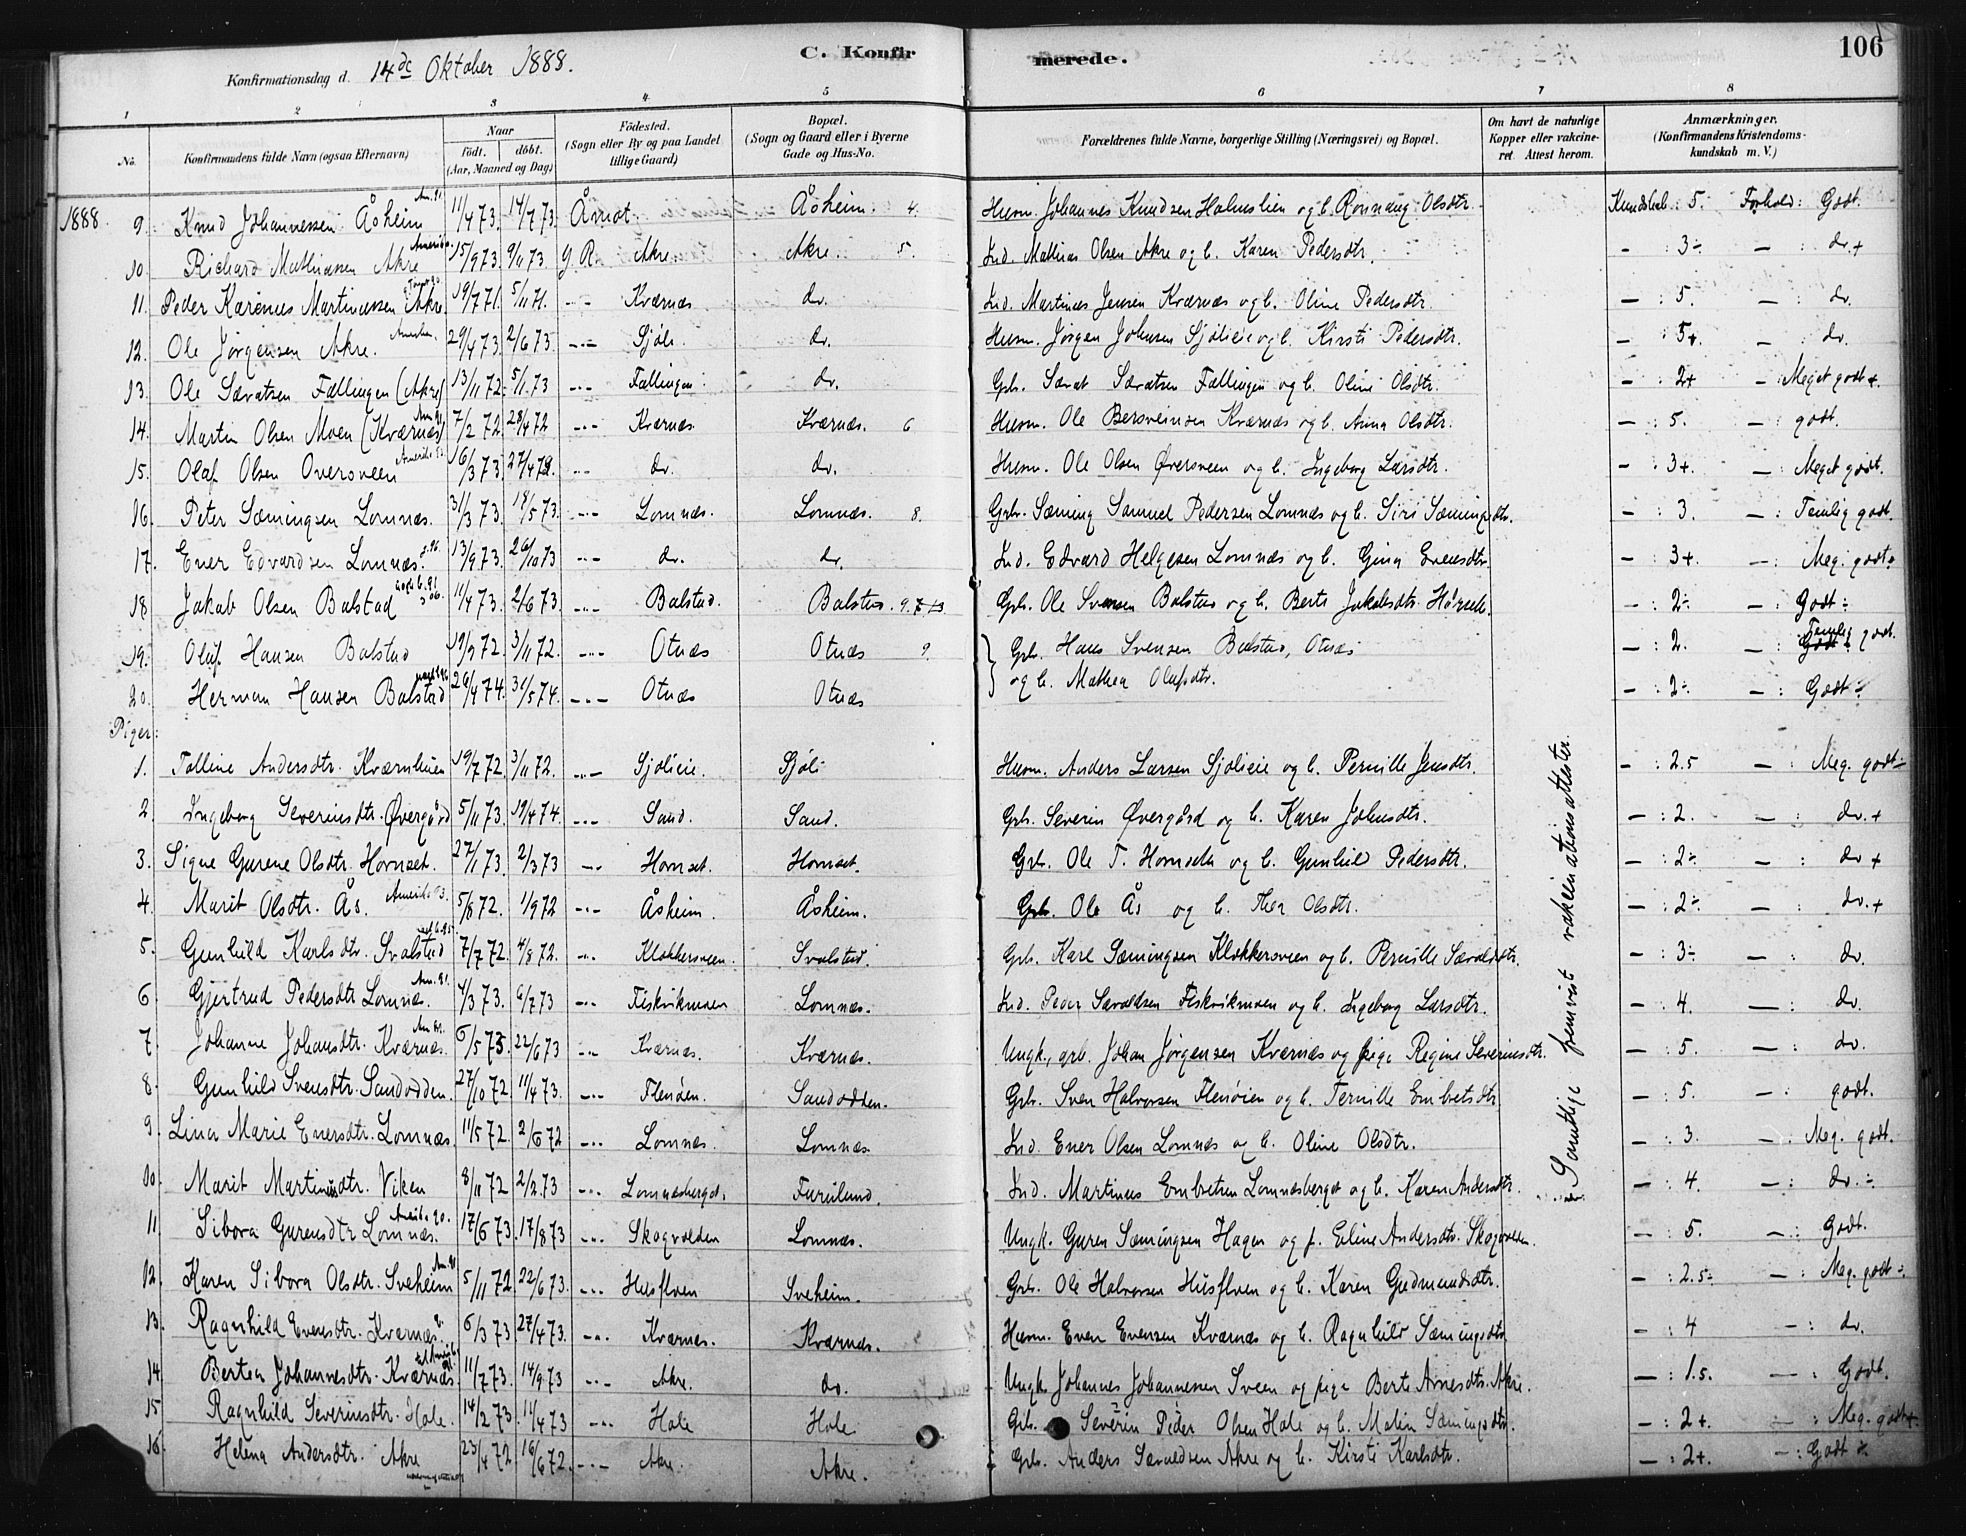 C. Konfirmerede. 106
Konfirmationsdag d. 14de Oktober 1888.
1 2 3 4 5 6 7 8
No. Konfirmandens fulde Navn (ogsaa Efternavn) Naar født. døbt. (Aar, Maaned og Dag) Fødested. (Sogn eller By og paa Landet tillige Gaard) Bopæl. (Sogn og Gaard eller i Byerne Gade og Hus-No. Forældrenes fulde Navne, borgerlige Stilling (Næringsvei) og Bopæl. Om havt de naturlige Kopper eller vakcineret. Attest herom. Anmærkninger. (Konfirmandens Kristendomskundskab m. V.)
1888. 9. Knud Johannessen Åsheim Am. 91. 11/4 73. 14/7 73. Åmot. Åsheim. 4. Husm. Johannes Knudsen Holmslien og h. Rønnaug Olsdtr. Kundskab: 5. Forhold: Godt.
10. Richard Mathiassen Akre Amerika. 15/9 73. 9/11 73. Y. R. Akre. Akre. 5. Ind. Mathias Olsen Akre og h. Karen Pedersdtr. — : 3÷ — : do.+
11. Peder Karenus Martinussen Akre 19/7 71. 5/11 71. -"- Kværnæs do. Ind. Martinus Jensen Kværnæs og h. Oline Pedersdtr. — : 5. — : do.
12. Ole Jørgensen Akre. 29/4 73. 2/6 73. -"- Sjøli. do. Husm. Jørgen Johnsen Sjølieie og h. Kirsti Pedersdtr. — : 5+. — : do.
13. Ole Sævatsen Fællingen (Akre) 13/11 72. 5/1 73 -"- Fællingen. do. Gbr. Sævat Sævatsen Fællingen og h. Oline Olsdtr. — : 2+ — : Meget godt+.
14. Martin Olsen Moen (Kværnæs) Am. 91 7/2 72. 28/4 72 -"- Kværnæs Kværnæs. 6 Husm. Ole Bersveinsen Kværnæs og h. Anna Olsdtr. — : 5. — : godt.
15. Olaf Olsen Øversveen Amerika 16/3 73. 27/4 73. -"- do. do. Husm. Ole Olsen Øversveen og h. Ingeborg Larsdtr. — : 3+. — : Meget godt.
16. Peter Sæmingsen Lomnæs. 31/3 73. 18/5 73. -"- Lomnæs. Lomnæs. 8. Gbr. Sæming Samuel Pedersen Lomnæs og h. Siri Sæmingsdtr. — : 3. — : Temlig godt.
17. Ener Edvardsen Lomnæs. 13/9 73. 26/10 73 -"- do. do. Ind. Edvard Helgesen Lomnæs og h. Gina Evensdtr. — : 3+. — : Meg. godt÷
18 Jakob Olsen Bolstad 11/4 73. 2/6 73. -"- Bolstad. Bolstad. Gbr. Ole Svensen Bolstad og h. Berte Jakobsdtr. — : 2÷ — : Godt÷
19. Oluf Hansen Bolstad 19/9 72. 3/11 72. -"- Otnæs Otnæs 9. Gbr. Hans Svensen Bolstad, Otnæs — : 2. — : Temlig godt.
20. Herman Hansen Bolstad 26/4 74. 31/5 74. -"- Otnæs Otnæs og h. Mathea Olufsdtr. — : 2÷ — : Godt÷
Piger:
1. Talline Andersdtr. 19/7 72. 3/11 72. -"- Sjølieie. Sjøli Husm. Anders Larsen Sjølieie og h. Pernille Jensdtr. — : 2.5 — : Meg. godt÷
2. Ingeborg Severinsdtr. Øvergård 5/11 73. 19/4 74. -"- Sand. Sand. Gbr. Severin Øvergård og h. Karen Johnsdtr. — : 2. — : do.+
3. Signe Gurene Olsdtr. Hornset. 27/1 73. 2/3 73 -"- Hornset. Hornset. Gbr. Ole T. Hornseth og h. Gunhild Pedersdtr. — : 2÷ — : do+
4. Marit Olsdtr. Ås. Amerika 93. 5/8 72. 1/9 72 -"- Åsheim. Åsheim. Gbr. Ole Ås og h. Thea Olsdtr. — : 2÷ — : do.+
5. Gunhild Karlsdtr. Svalstad 7/7 72. 4/8 72. -"- Klokkersveen. Svalstad. Gbr. Karl Sæmingsen Klokkersveen og h. Pernille Sævaldsdtr. — : 3÷ — : do.
6 Gjertrud Pedersdtr Lomnæs. Am. 91. 4/3 73. 6/7 73 -"- Fiskvikmoen Lomnæs. Ind. Peder Sævaldsen Fiskvikmoen og h. Ingeborg Larsdtr. — : 4. — : do.
7. Johanne Johansdtr. Kværnæs. 6/5 73. 22/6 73 -"- Kværnæs. Kværnæs. Ungk., gbr. Johan Jørgensen Kværnæs og pige Regine Severinsdtr. — : 5. — : do.
8. Gunhild Svensdtr. Sandodden. 27/10 72. 11/4 73. -"- Flenøen. Sandodden. Gbr. Sven Halvorsen Flenøien og h. Pernille Embretsdtr — : 5. — : godt.
9. Lina Marie Enersdtr. Lomnæs. 11/5 72. 2/6 72 -"- Lomnæs. Lomnæs. Ind. Ener Olsen Lomnæs og h. Oline Olsdtr. — : 3. — : Meg. godt.
10. Marit Martinusdtr. Viken 8/11 72 2/2 73 -"- Lomnæsberget. Furulund. Ind. Martinus Embretsen Lomnæsberget og h. Karen Andersdtr. — : 4. — : do.÷
11. Sibora Gurensdtr Lomnæs. Amerika 90. 17/6 73. 17/8 73 -"- Skogvolden Lomnæs. Ungk. Guren Sæmingsen Hagen og p. Eline Andersdtr. — : 5. — : Godt.
12. Karen Sibora Olsdtr. Sveheim 5/11 72. 22/6 73. -"- Husfloen Sveheim. Gbr. Ole Halvorsen Husfloen og h. Karen Gudmundsdtr. — : 2.5÷ — : Meg. godt÷
13. Ragnhild Evensdtr. Kværnæs. 6/3 73 27/4 73. -"- Kværnæs. Kværnæs. Husm. Even Evensen Kværnæs og h. Ragnhild Sæmingsdtr — : 4 — : do.
14. Bertea Johannesdtr. Kværnæs. 11/7 73. 14/9 73 -"- Akre. do. Ungk. Johannes Johannessen Sveen og pige Berte Arnesdtr. Akre. — : 1.5. — : Godt.
15 Ragnhild Severinsdtr. Hole. 14/2 73. 11/4 73 -"- Hole Hole Gbr. Severin Peder Olsen Hole og h. Malin Sæmingsdtr. — : 2+. — : Meg. godt+.
16. Helena Andersdtr. Akre 23/4 72. 16/6 72. -"- Akre. Akre. Gbr. Anders Sævaldsen Akre og h. Kirsti Karlsdtr. — : 2+. — : Godt÷
Samtlige fremvist vakcinationsattester.